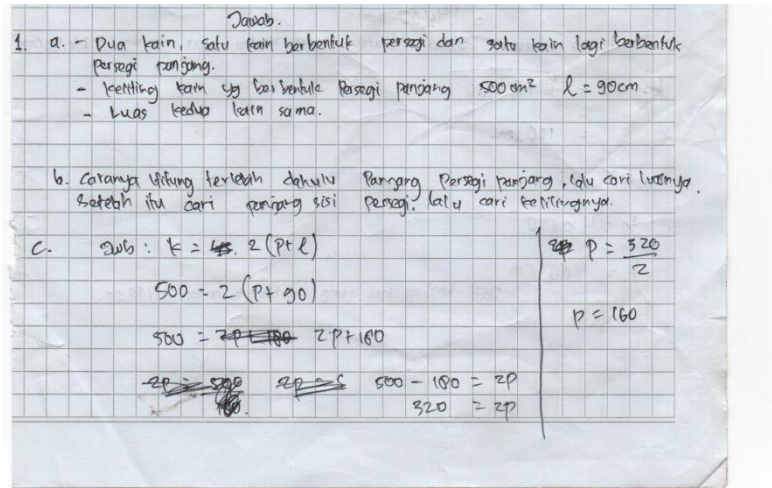 Jawab.
1. a. - Dua kain, satu kain berbentuk persegi dan satu kain lagi berbentuk
persegi panjang.
- keliling kain yg berbentuk Persegi panjang 500 cm² l = 90 cm
- Luas kedua kain sama.
b. Caranya hitung terlebih dahulu Panjang Persegi panjang, lalu cari luasnya.
Setelah itu cari panjang sisi persegi, lalu cari kelilingnya.
c. Jwb : k = 2 (p+l)
500 = 2 (p+ 90)
500 = 2p+180
500 - 180 = 2p
320 = 2p
p = 320/2
p = 160